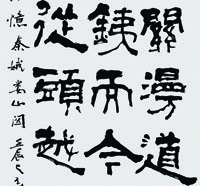 關漫道
銕而今
從頭越
憶秦娥娄山関 壬辰